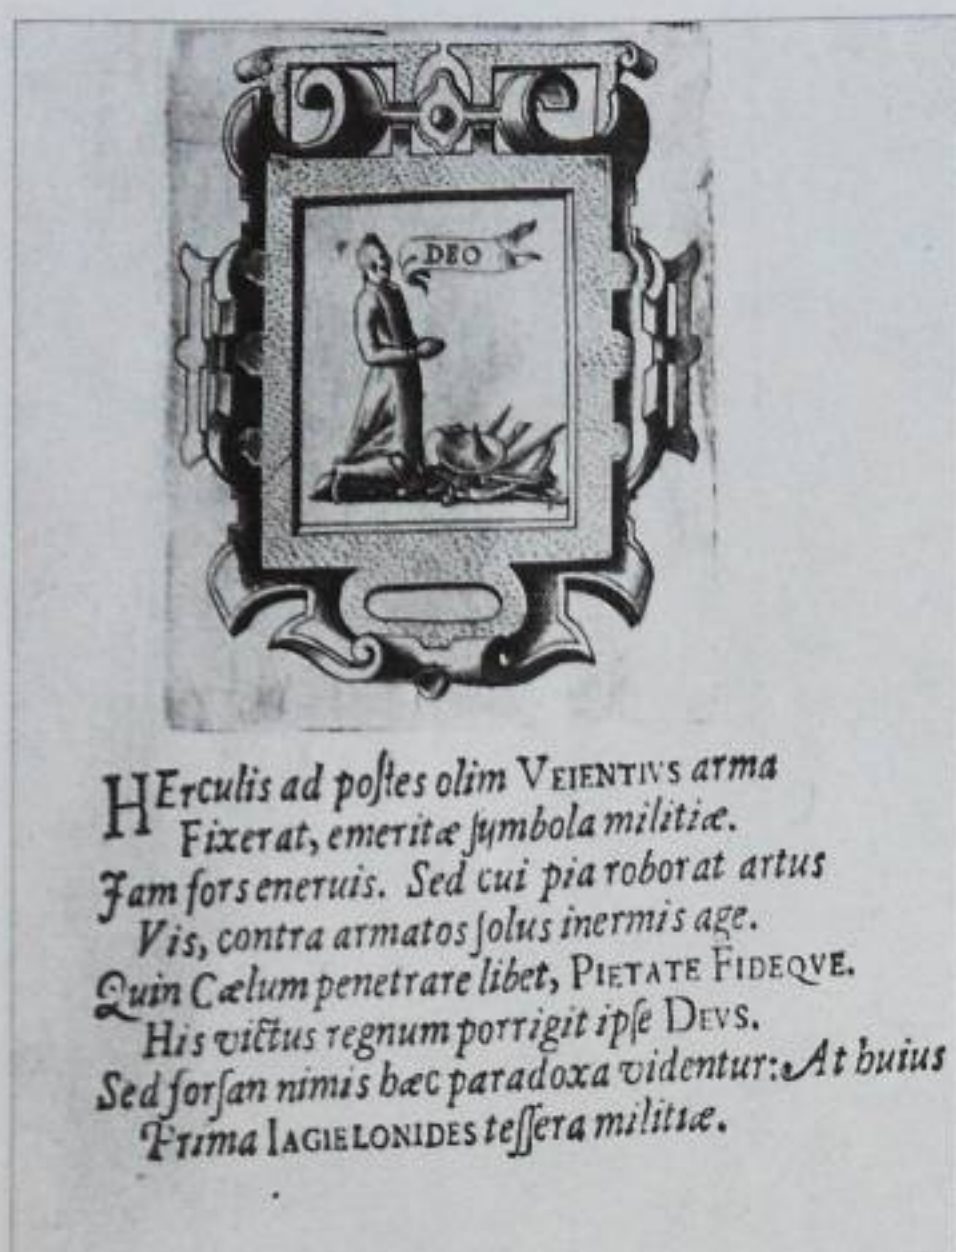 DEO
HErculis ad poſtes olim VEIENTIVS arma
Fixerat, emeritæ ſymbola militiæ.
Jam fors eneruis. Sed cui pia roborat artus
Vis, contra armatos ſolus inermis age.
Quin Cælum penetrare libet, PIETATE FIDEQVE.
His victus regnum porrigit ipſe DEVS.
Sed forſan nimis hæc paradoxa videntur: At huius
Prima IAGIELONIDES teſſera militiæ.